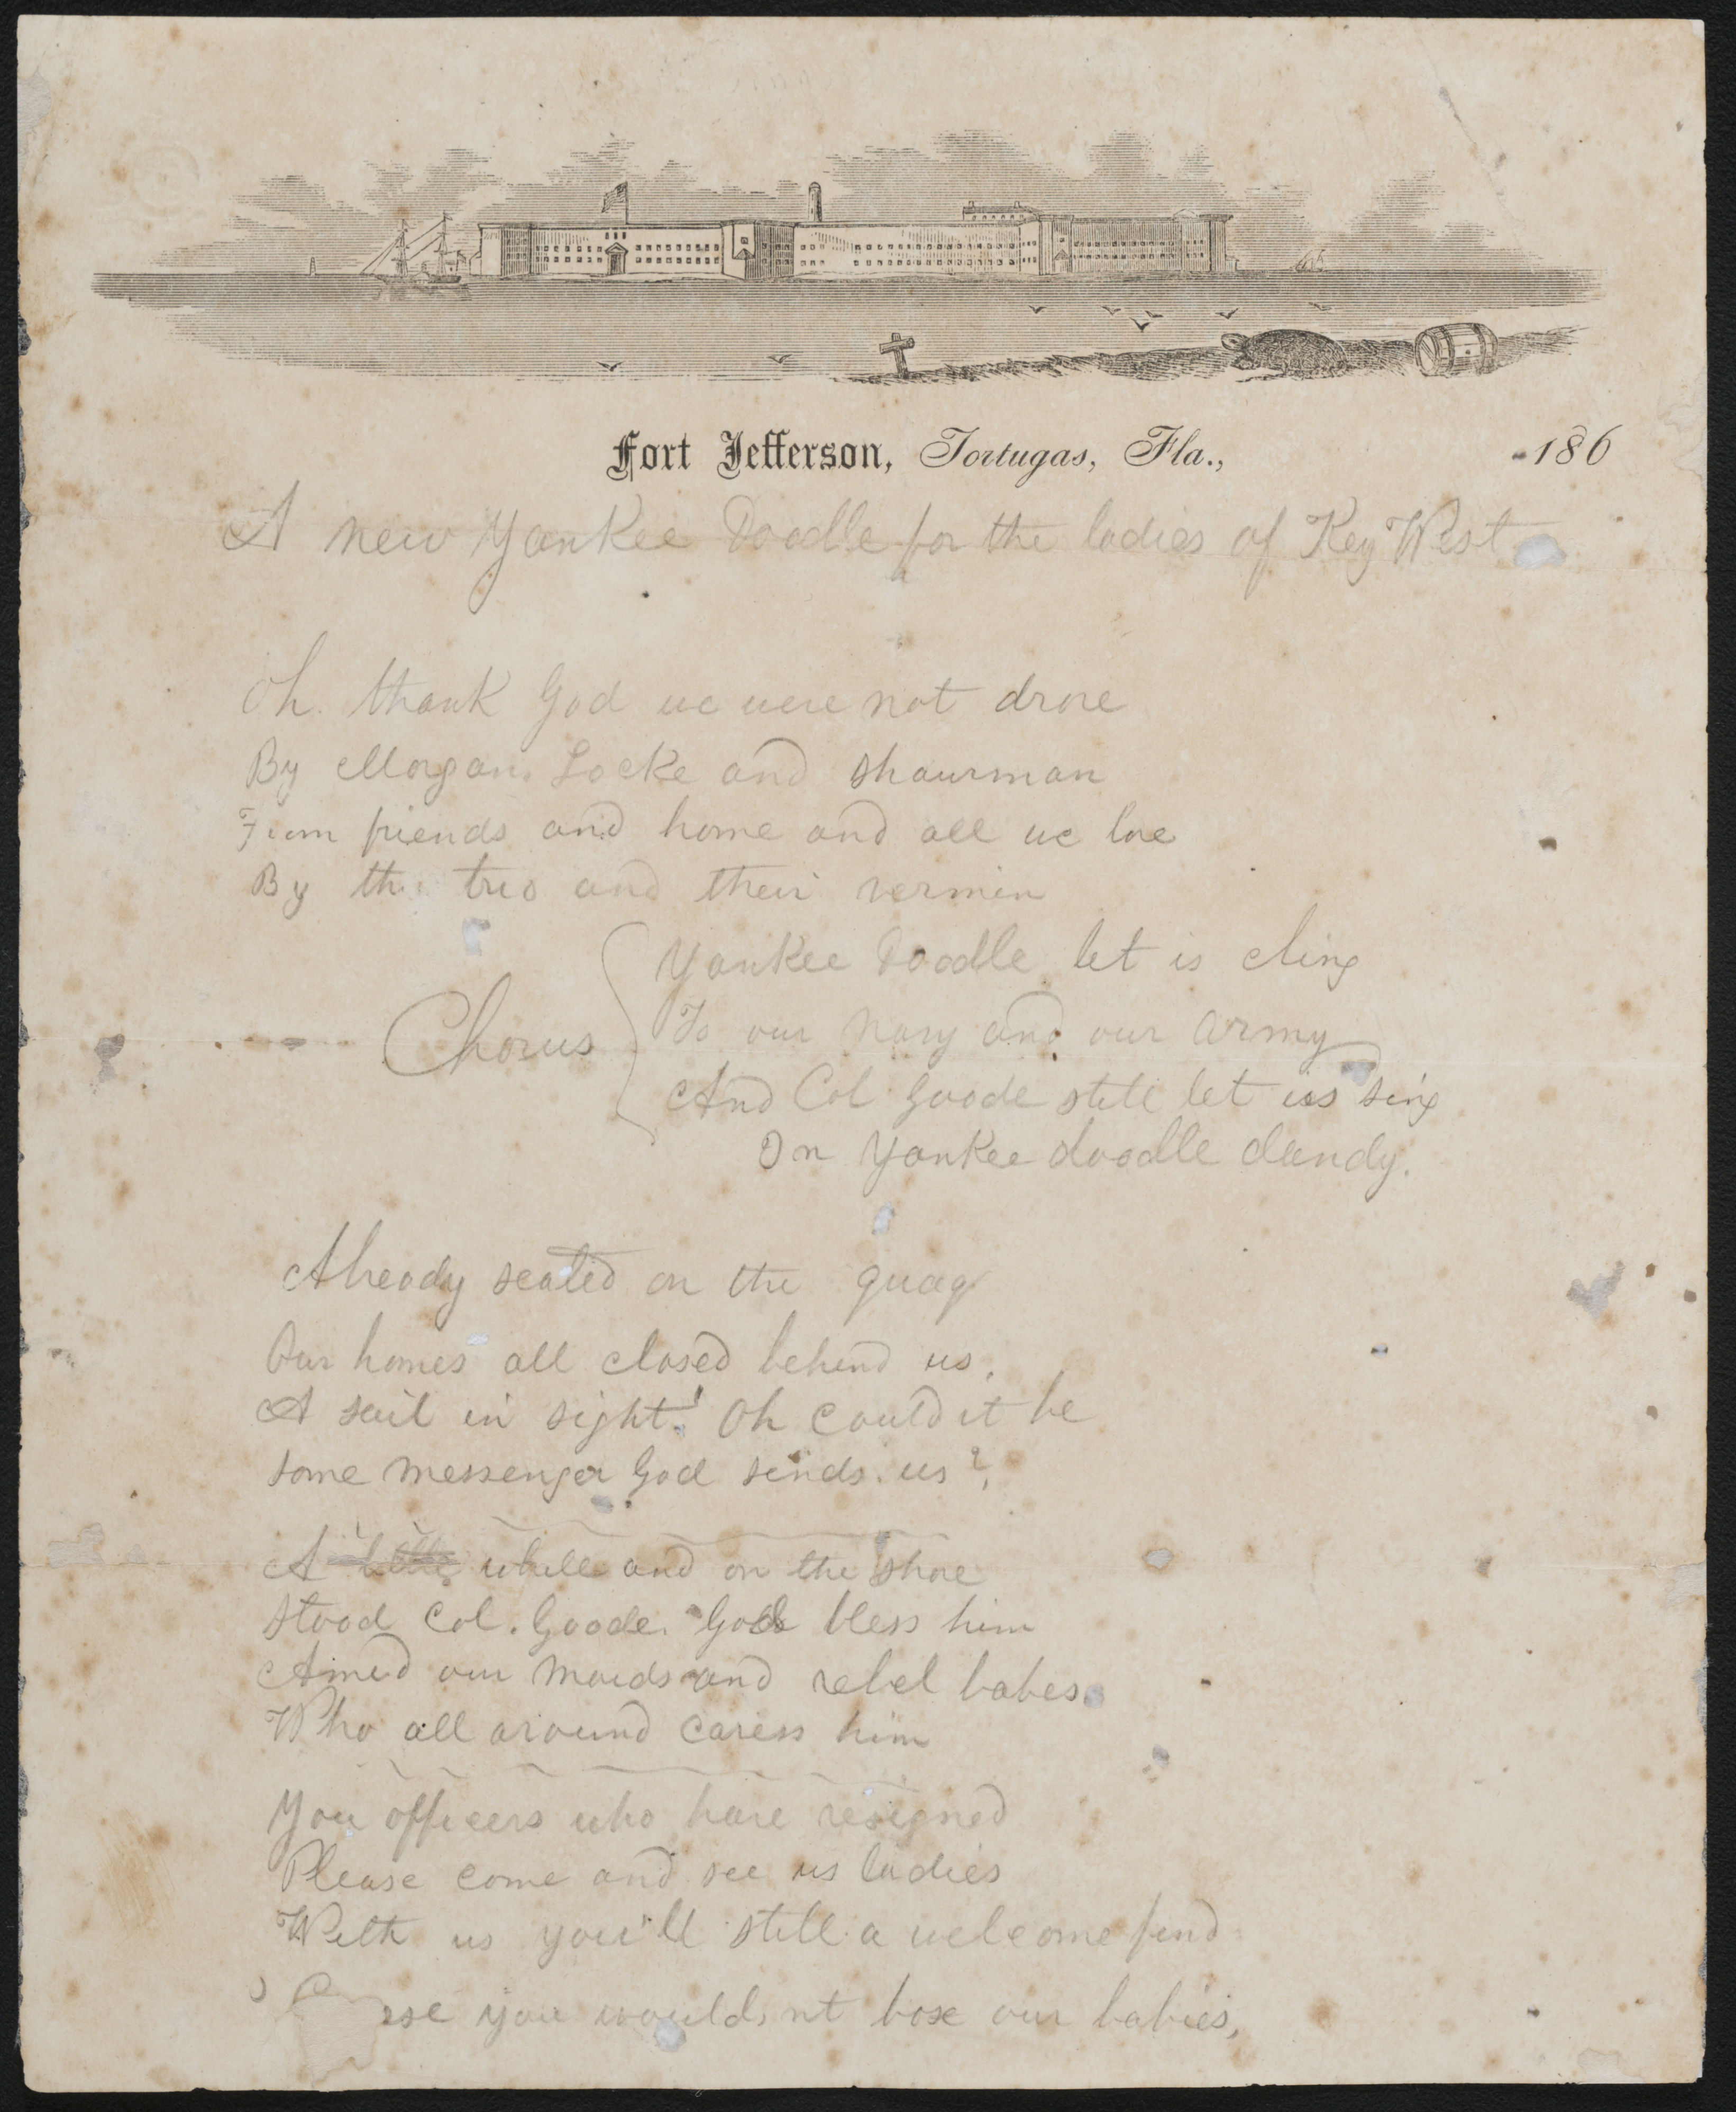 Fort Jefferson, Tortugas, Fla., 186
A new Yankee Doodle for the ladies of Key West
Oh. thank God we were not drove
By Morgan. Locke and Shaurman
From friends and home and all we love
By the trio and their vermin
Chorus
Yankee Doodle let us cling
To our Navy and our Army
And Col Goode still let us sing
On Yankee doodle dandy.
Already seated on the quay
Our homes all closed behind us,
A sail in sight! Oh could it be
Some messenger God sends us?
A little while and on the shore
Stood Col. Goode. God bless him
Amid our maids and rebel babes
Who all around caress him
You officers who have resigned
Please come and see us ladies
With us you'll still a welcome find
you would,nt box our babies,